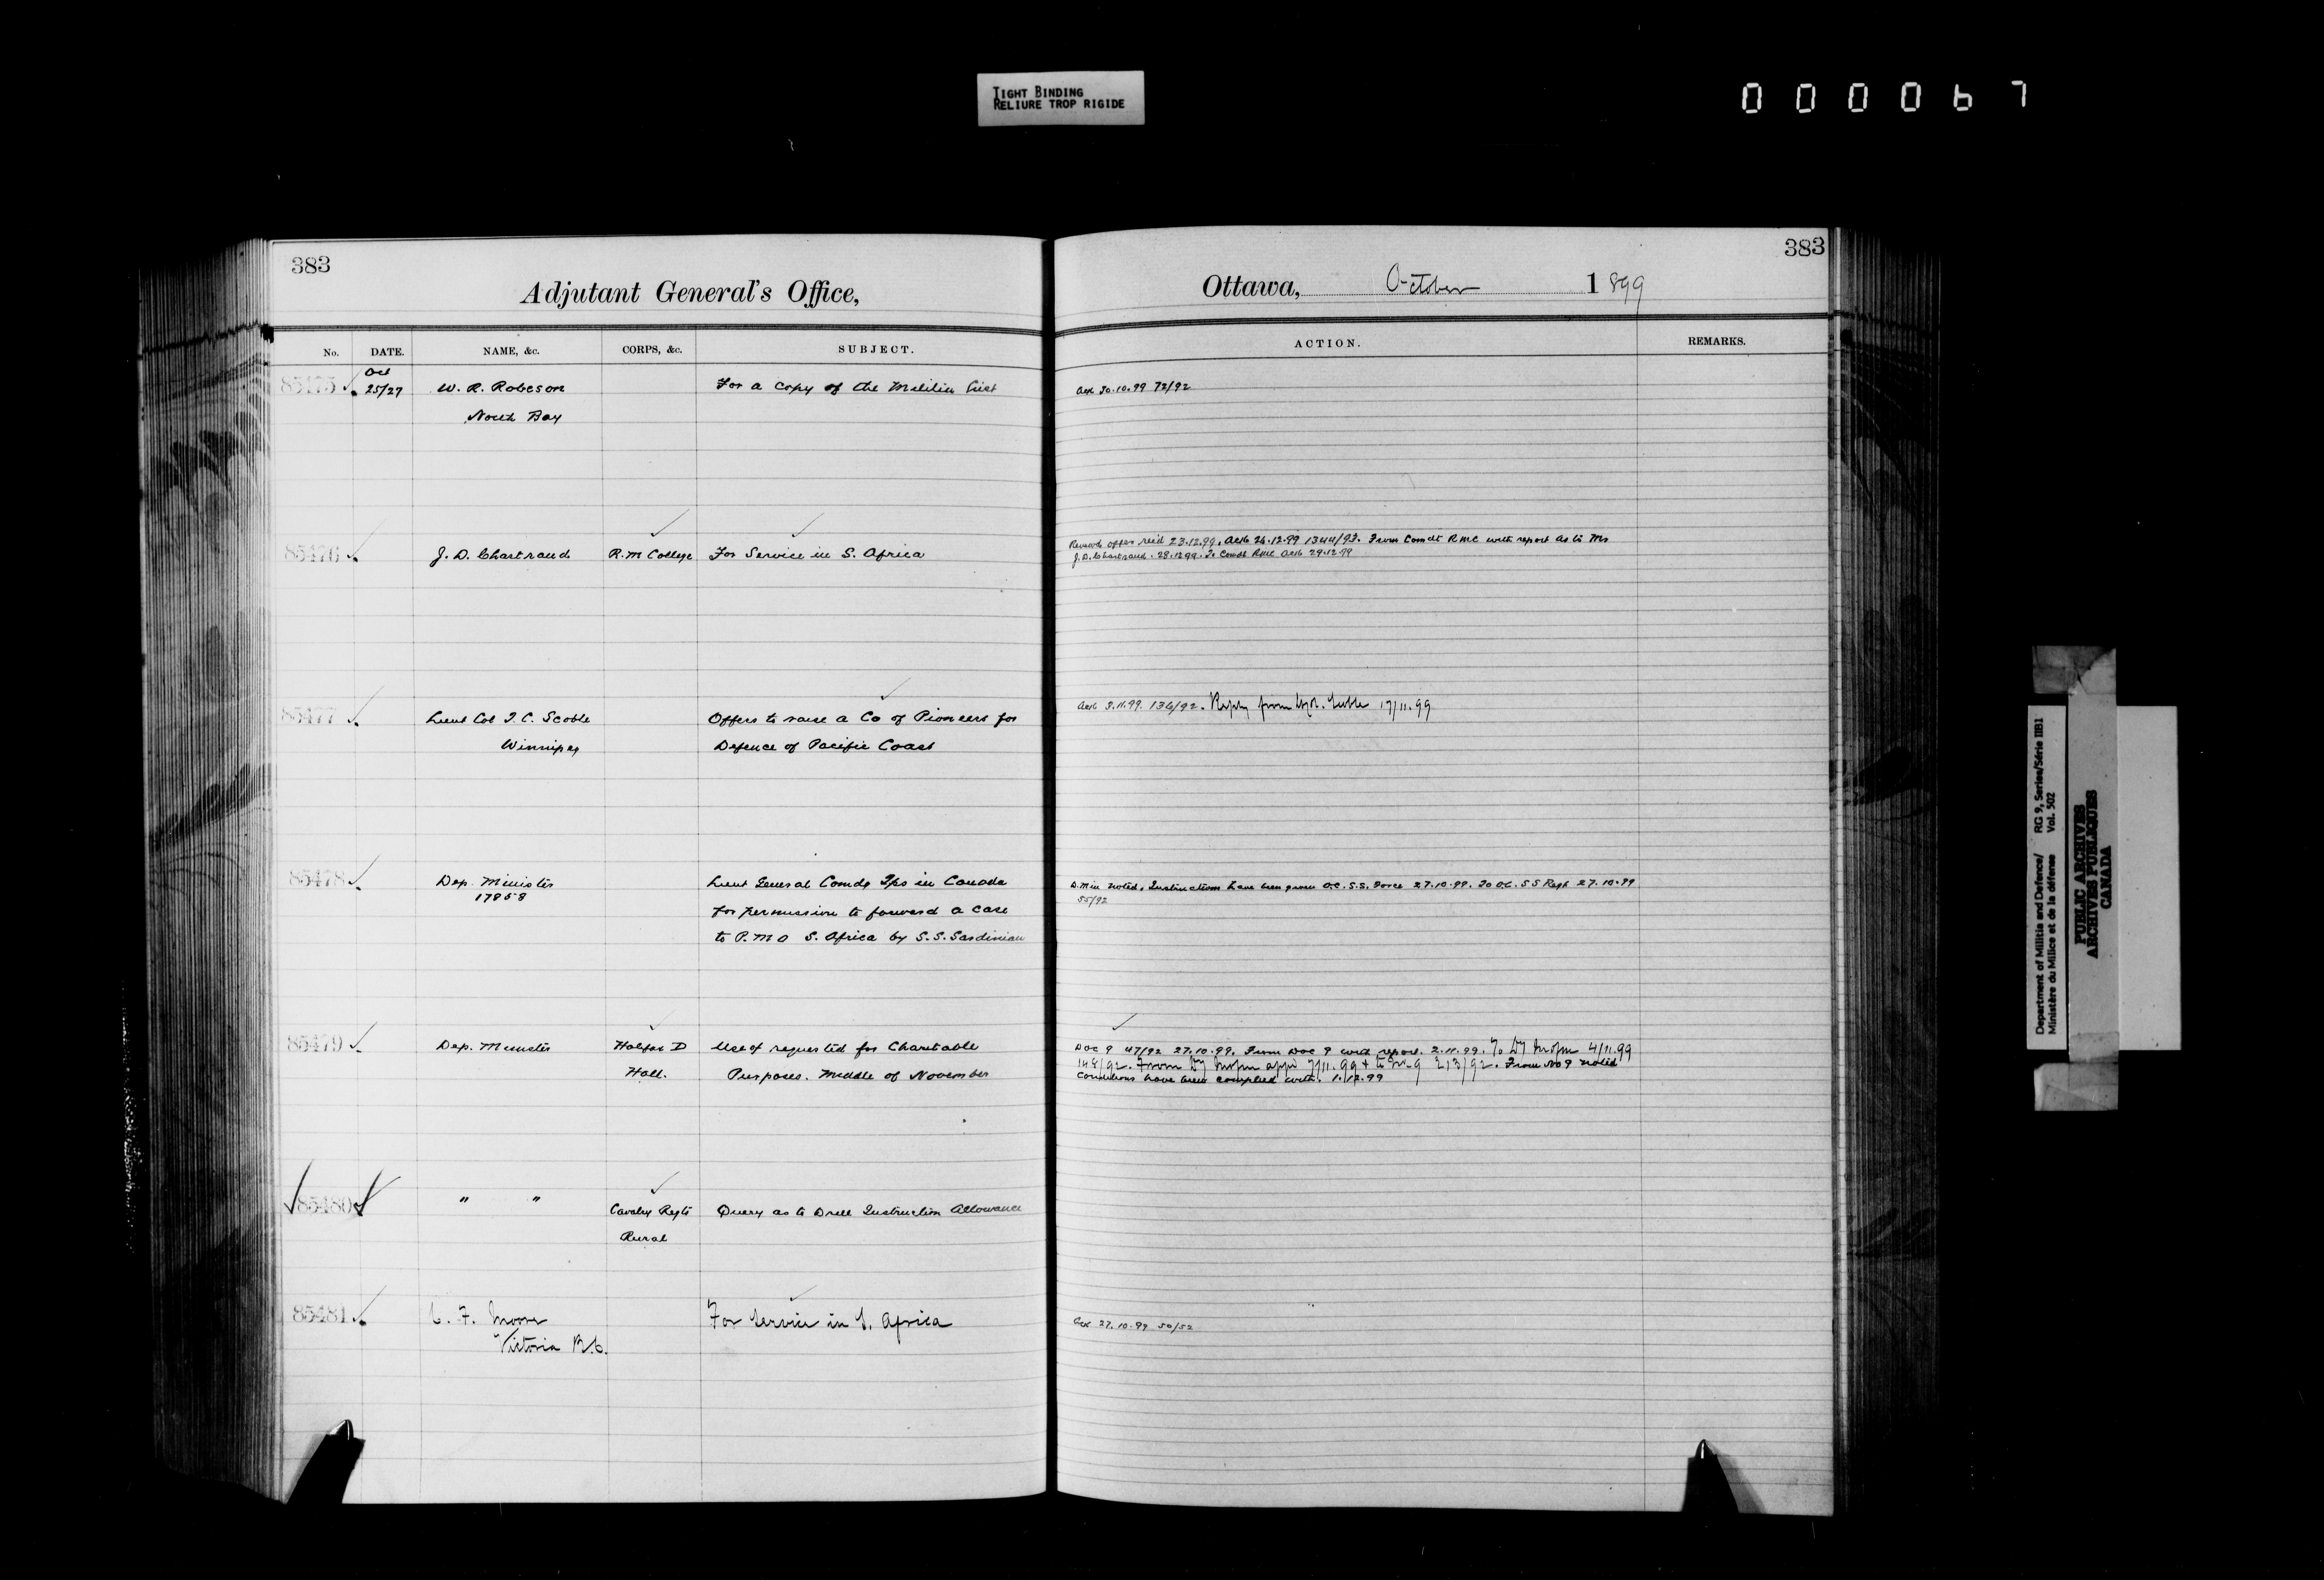 TIGHT BINDING
RELIURE TROP RIGIDE
000067
383
Adjutant General's Office,
No. DATE. NAME, &c. CORPS, &c. SUBJECT.
85475 Oct 25/27 W. R. Robeson For a copy of the Militia List
North Bay
85476 J. D. Chartrand R. M College For Service in S. Africa
85477 Lieut Col T. C. Scoble Offers to raise a Co of Pioneers for
Winnipeg Defence of Pacific Coast
85478 Dep. Minister Lieut General Comdg Tps in Canada
17858 for permission to forward a case
to P. M O S. Africa by S. S. Sardinian
85479 Dep. Minister Halifax D Use of requested for Charitable
Hall. Purposes. Middle of November
85480 " " Cavalry Regts Query as to Drill Instruction Allowance
Rural
85481 C. F. Moore For Service in S. Africa
Victoria B.C.
383
Ottawa, October 1899
ACTION. REMARKS.
Ack 30.10.99 72/92
Renewed offer rec'd 23.12.99. Ack 26.12.99 1344/93. From Comdt RMC with report as to Mr
J. D. Chartrand. 28.12.99. To Comdt RMC Ack 29.12.99
Ack 3.11.99. 136/92. Reply from 17/11.99
D. Min noted. Instructions have been given O.C. S.S. Force 27.10.99. To O.C. S S Regt 27.10.99
55/92
DOC 9 47/92 27.10.99. From DOC 9 with report. 2.11.99. To 4/11.99
148/92. From appd 7/11.99 & to 9 213/92. From No 9 noted
Conditions have been complied with. 1.12.99
Ack 27.10.99 50/52
Department of Militia and Defence/ RG 9, Series/Série IIB1
Ministère du Milice et de la défense Vol. 502
PUBLIC ARCHIVES
ARCHIVES PUBLIQUES
CANADA